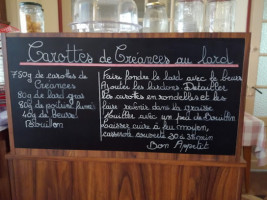 Carottes de Créances au lard
750g de carottes de
Créances
80g de lard gras
80g de poitrine fumée
40g de beurre
Bouillon
Faire fondre le lard avec le beurre
Ajouter les lardons. Détailler
les carottes en rondelles et les
faire revenir dans la graisse
Mouiller avec un peu de Bouillon
laissez cuire à feu moyen,
casserole couverte 30 à 35 min
Bon Appétit